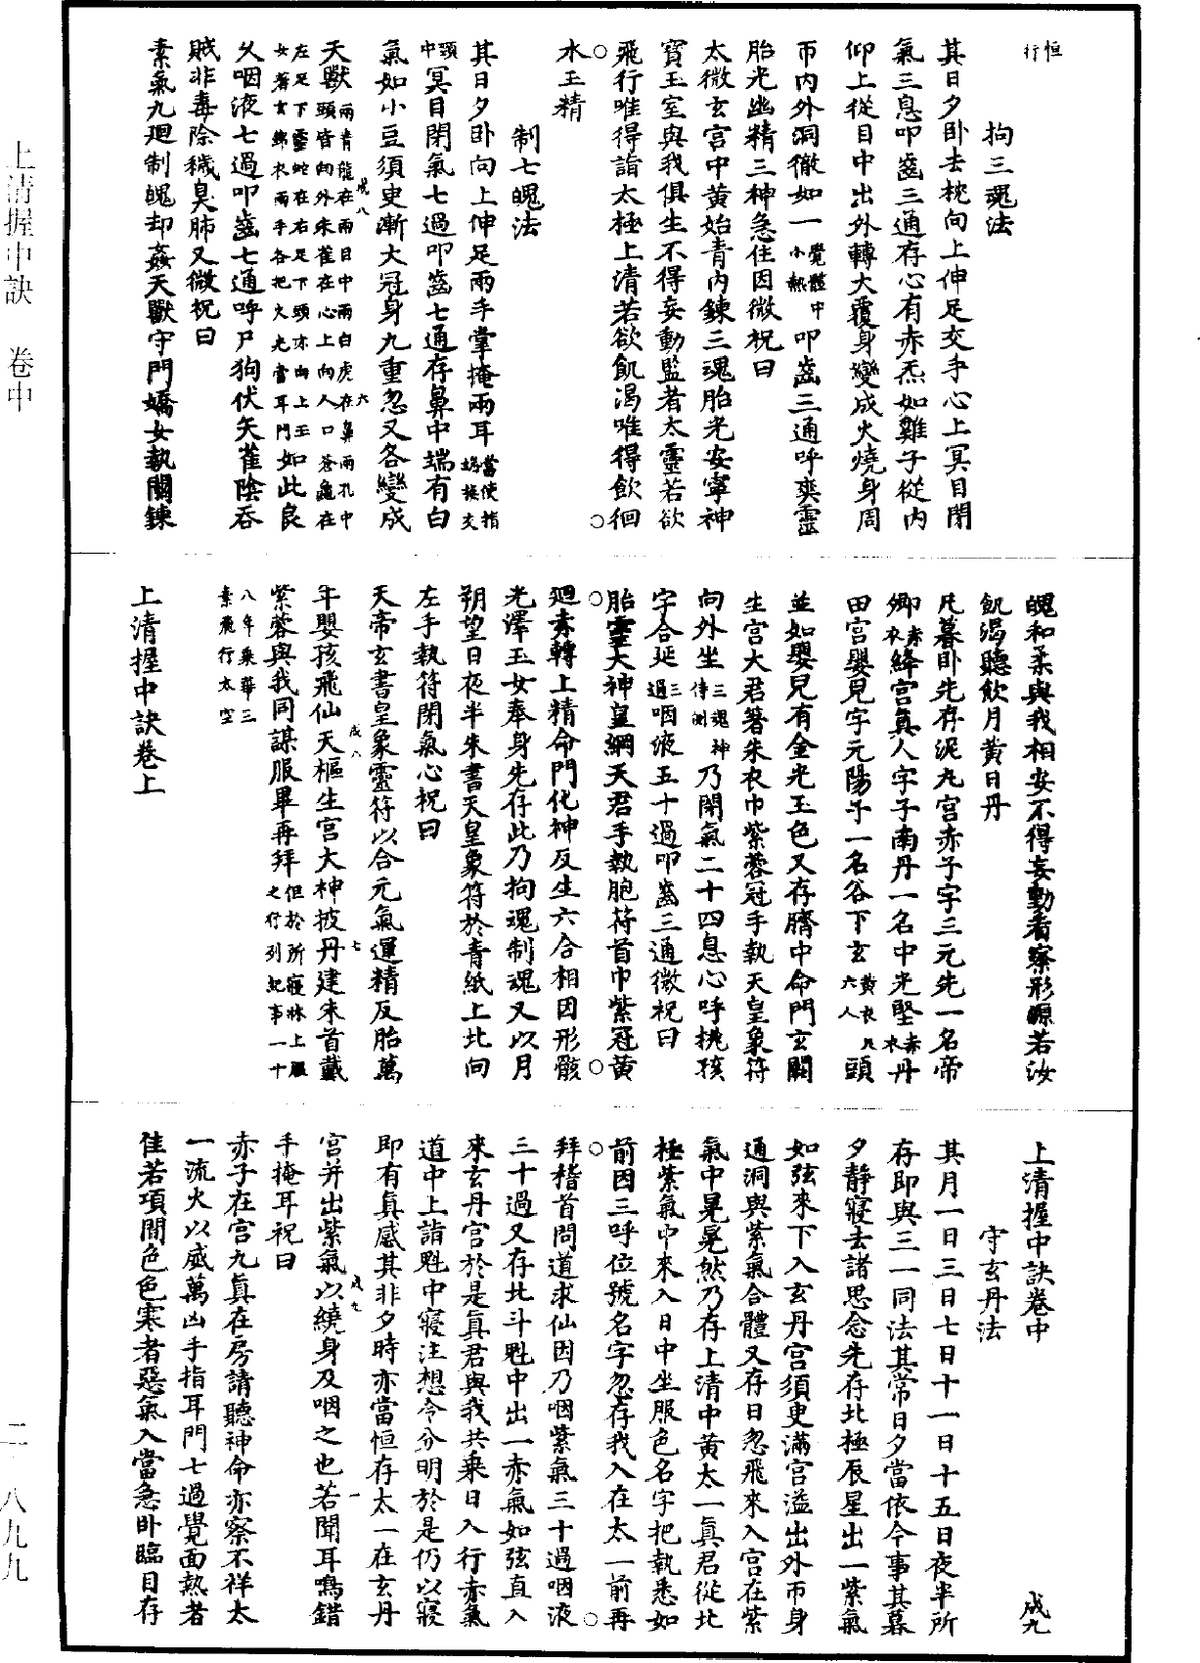 恒行
拘三魂法
其日夕卧去枕向上伸足交手心上冥目閉
氣三息叩齒三通存心有赤炁如雞子從内
仰上從目中出外轉大覆身變成火燒身周
帀内外洞徹如一覺體中小熱叩齒三通呼爽靈
胎光幽精三神急住因微祝曰
太微玄宫中黄始青内鍊三魂胎光安寧神
寳玉室與我俱生不得妄動監者太靈若欲
飛行唯得詣太極上清若欲飢渴唯得飲徊
水玉精
制七魄法
其日夕卧向上伸足兩手掌掩兩耳當使指端接交
頭中冥目閉氣七過叩齒七通存鼻中端有白
氣如小豆須臾漸大冠身九重忽又各變成
天獸兩青龍在兩目中兩白虎在鼻兩孔中
頭皆向外朱雀在心上向人口蒼龜在
左足下靈蛇在右足下頭亦向上玉
女著玄錦衣兩手各把火光當耳門如此良
久咽液七過叩齒七通呼尸狗伏矢雀陰吞
賊非毒除穢臭肺又微祝曰
素氣九廻制魄却姦天獸守門嬌女執關鍊
魄和柔與我相安不得妄動看察形源若汝
飢渴聽飲月黄日丹
凡暮卧先存泥丸宫赤子字三元先一名帝
卿赤衣絳宫真人字子南丹一名中光堅赤衣丹
田宫嬰兒字元陽子一名谷下玄黄衣凡六人頭
並如嬰兒有金光玉色又存臍中命門玄關
生宫大君著朱衣巾紫蓉冠手執天皇象符
向外坐三魂神侍側乃閉氣二十四息心呼桃孩
字合延三過咽液五十過叩齒三通微祝曰
胎靈大神皇綱天君手執胞符首巾紫冠黄
廻素轉上精命門化神反生六合相因形骸
光澤玉女奉身先存此乃拘魂制魂又以月
朔望日夜半朱書天皇象符於青紙上北向
左手執符閉氣心祝曰
天帝玄書皇象靈符以合元氣運精反胎萬
年嬰孩飛仙天樞生宫大神披丹建朱首戴
紫蓉與我同謀服畢再拜但於所寢牀上服之行列紀事一十
八年乘華三
素飛行太空
上清握中訣卷上
上清握中訣卷中 成九
守玄丹法
其月一日三日七日十一日十五日夜半所
存即與三一同法其常日夕當依今事其暮
夕静寢去諸思念先存北極辰星出一紫氣
如弦來下入玄丹宫須臾滿宫溢出外帀身
通洞與紫氣合體又存日忽飛來入宫在紫
氣中晃晃然乃存上清中黄太一真君從北
極紫氣中來入日中坐服色名字把執悉如
前因三呼位號名字忽存我入在太一前再
拜稽首問道求仙因乃咽紫氣三十過咽液
三十過又存北斗魁中出一赤氣如弦直入
來玄丹宫於是真君與我共乘日入行赤氣
道中上詣魁中寢注想令分明於是仍以寢
即有真感其非夕時亦當恒存太一在玄丹
宫并出紫氣以繞身及咽之也若聞耳鳴錯
手掩耳祝曰
赤子在宫九真在房請聽神命亦察不祥太
一流火以威萬凶手指耳門七過覺面熱者
佳若項間色色寒者惡氣入當急卧臨目存
上清握中訣 卷中
二·八九九